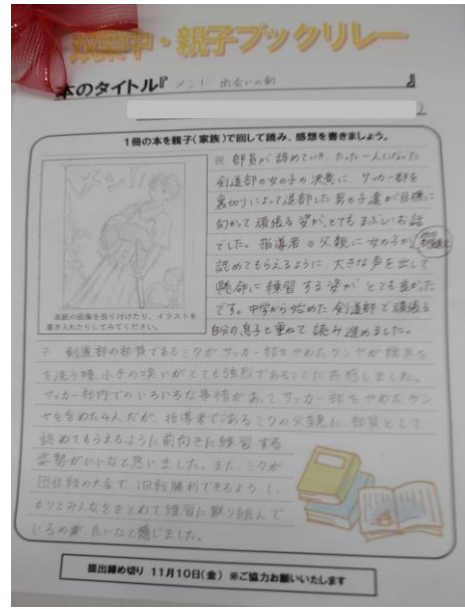 双葉中・親子ブックリレー
本のタイトル『 メン! 出会いの剣 』
1冊の本を親子(家族)で回して読み、感想を書きましょう。
メン!!
表紙の画像を張り付けたり、イラストを
書き入れたりしてみてください。
親 部員が辞めていき、たった一人になった
剣道部の女の子の決意に、サッカー部を
裏切りによって退部した男の子達が目標に
向かって頑張る姿が、とてもまぶしいお話
でした。指導者の父親に女の子が
認めてもらえるように、大きな声を出して
懸命に練習する姿が とても良かった
です。中学から始めた剣道部で頑張る
自分の息子と重ねて読み進めました。
子 剣道部の部員であるミクがサッカー部をやめたケンヤが防具を
を洗う時、小手の嗅いがとても強烈であることに共感しました。
サッカー部内でのいろいろな事情があってサッカー部をやめたケン
ヤを含めた4人だが、指導者であるミクの父親に、部員として
認めてもらえるように前向きに練習する
姿勢がいいなと思いました。また、ミクが
団体戦の大会で、1回戦勝利できるよう、し
かりとみんなをまとめて練習に取り組んで
いるのが、良いなと感じました。
提出締め切り 11月10日(金) ※ご協力お願いいたします